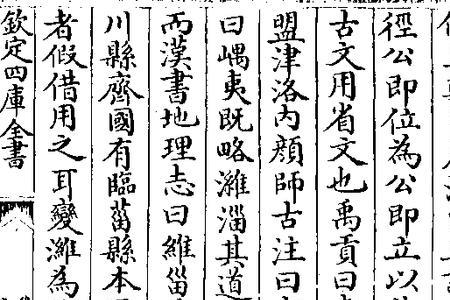 徑公即位為公即立以
古文用省文也禹貢曰
盟津洛内顔師古注曰
曰嵎夷既略濰淄其道
而漢書地理志曰維甾
川縣齊國有臨菑縣本
者假借用之耳變濰為
欽定四庫全書